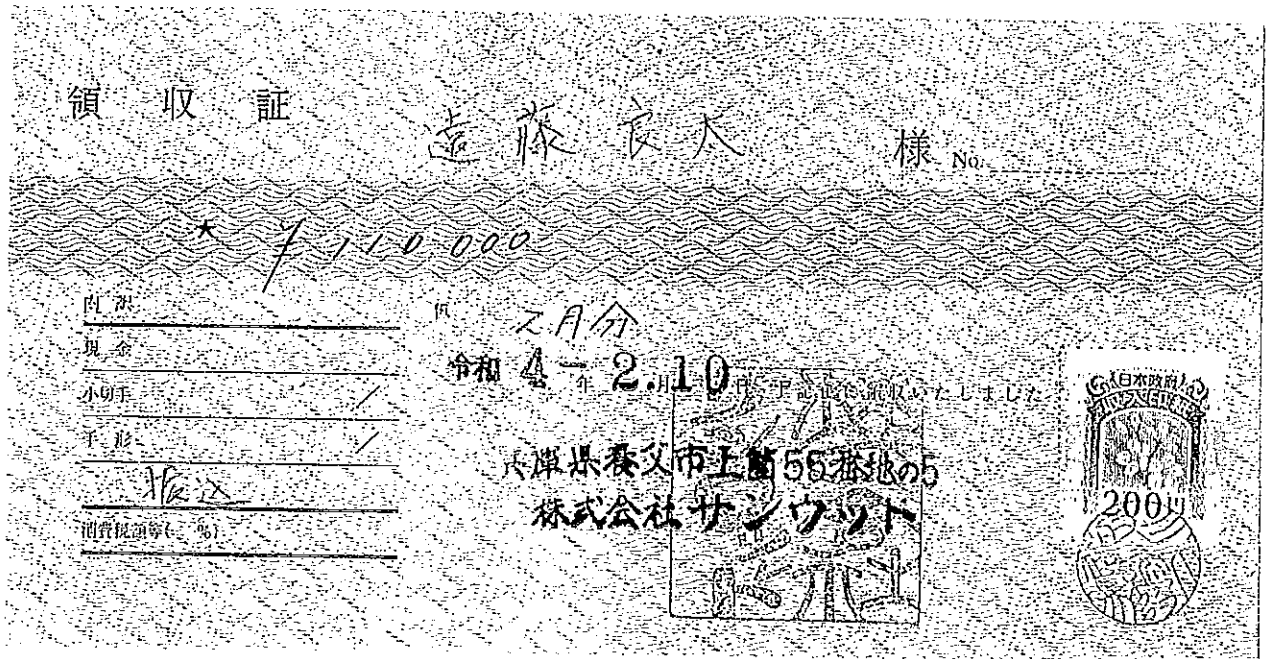 領収証
遠藤良太 様 No.
★ ¥110,000
内訳
現金
小切手 /
手形 /
振込
消費税額等( %)
但 2月分
令和 4年 2.10 日 上記正に領収いたしました
兵庫県養父市上箇55番地の5
株式会社サンウッド
日本政府
収入印紙
200円